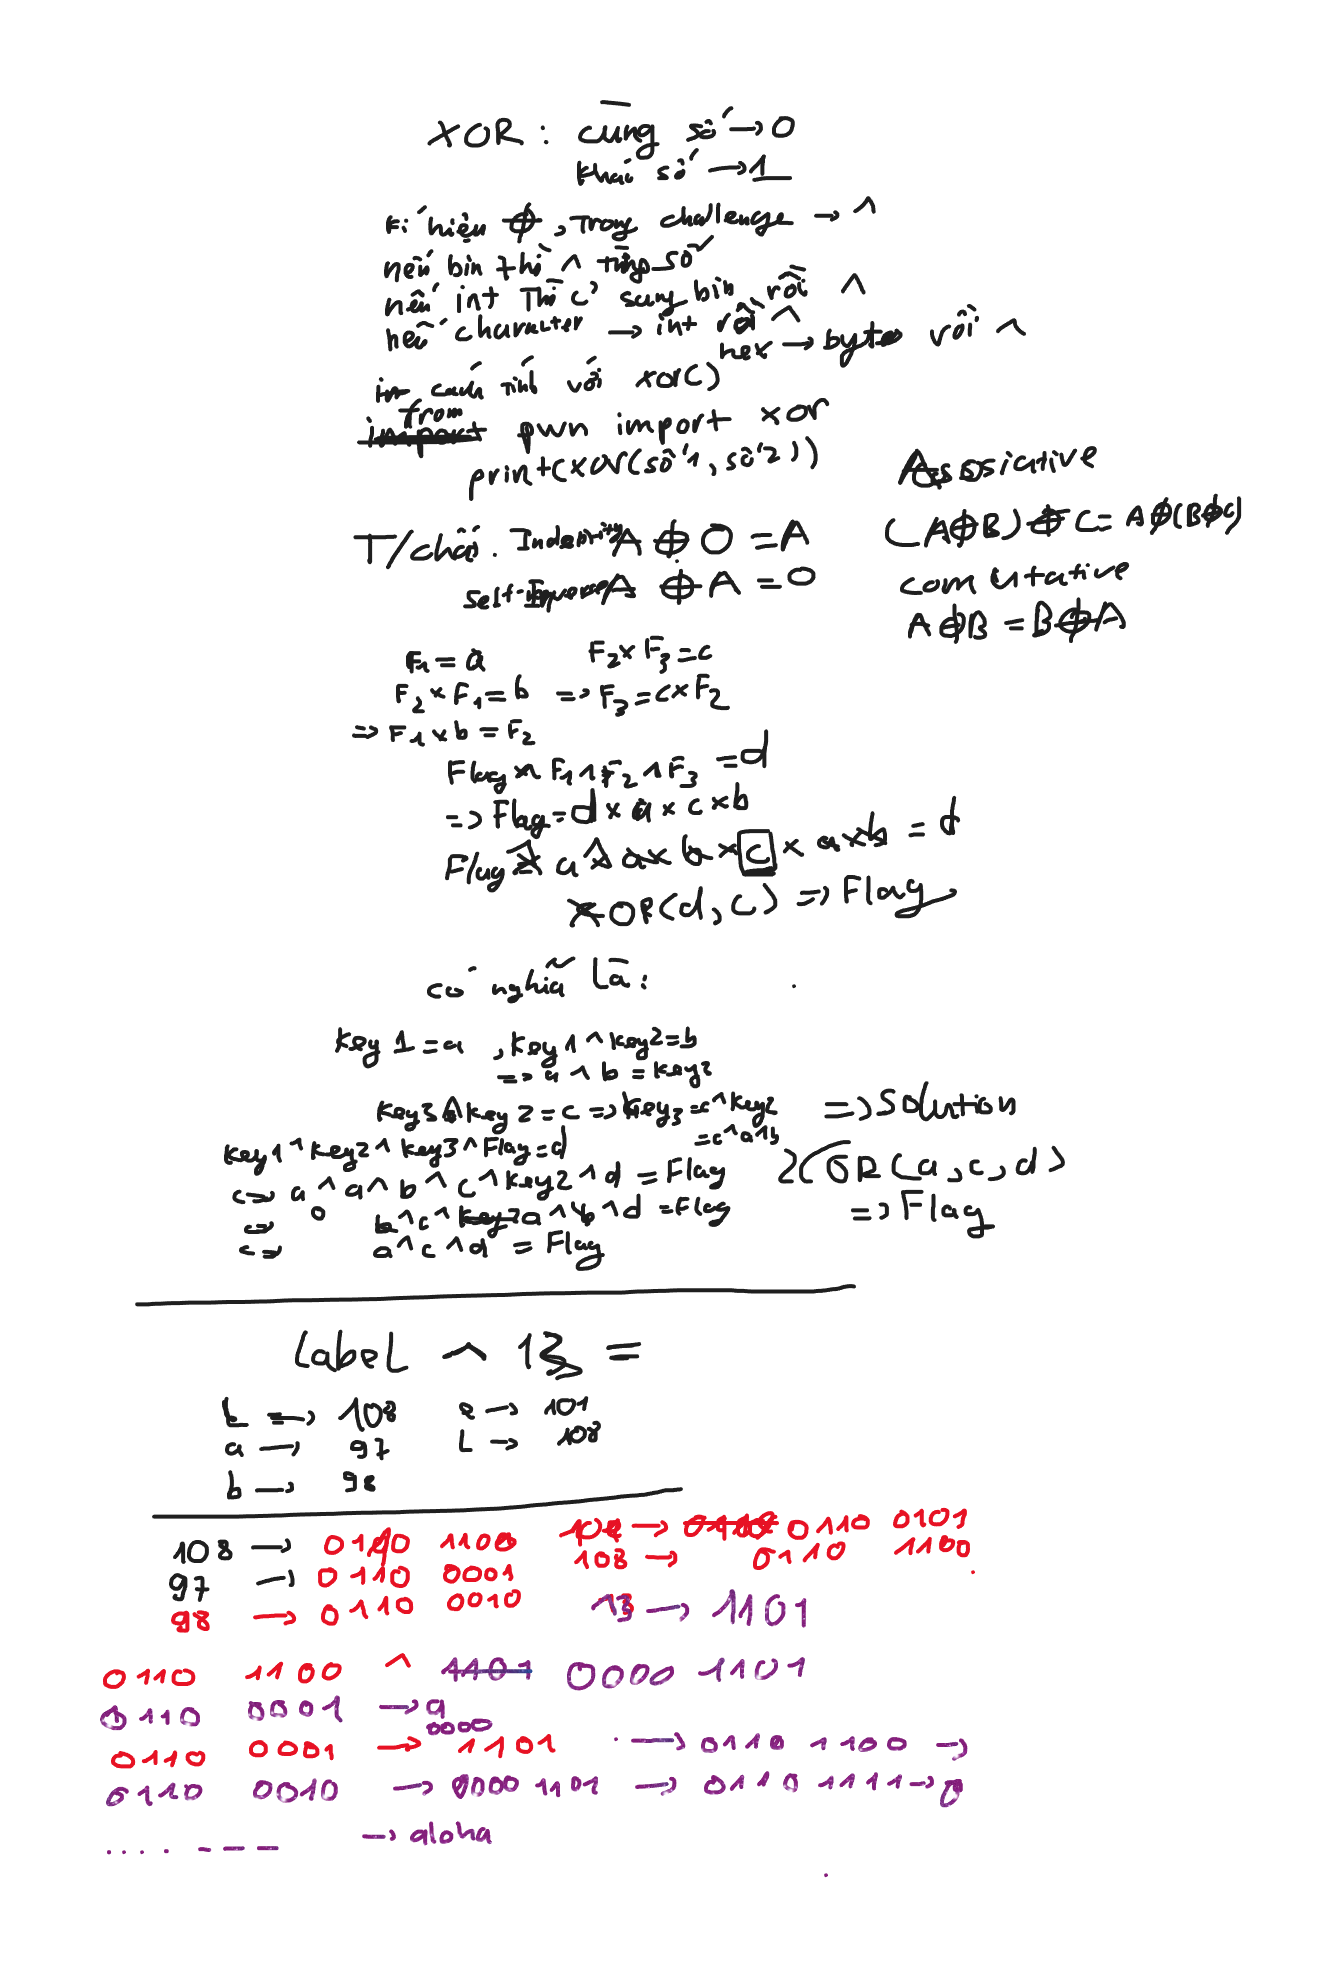 XOR : cùng số → 0
khác số → 1
kí hiệu ⌽ , trong challenge → ^
nếu bin thì ^ từng số
nếu int thì c' sang bin rồi ^
nếu character → int rồi ^
hex → bytes rồi ^
in cách tính với xor()
from
import pwn import xor
print(xor(số 1, số 2))
T/chất . Indentity A ⌽ 0 = A
self-Inverse A ⌽ A = 0
Associative
(A⌽B) ⌽ C = A⌽(B⌽C)
comutative
A⌽B = B⌽A
F1 = a
F2 x F3 = c
F2 x F1 = b => F3 = c x F2
=> F1 x b = F2
Flag x F1 ^ F2 ^ F3 = d
=> Flag = d x a x c x b
Flag x a x a x b x c x a x b = d
XOR(d, c) => Flag
có nghĩa là :
Key 1 = a , Key 1 ^ Key2 = b
=> a ^ b = Key2
Key3 ^ Key 2 = c => Key3 = c ^ Key2
= c ^ a ^ b
Key1 ^ Key2 ^ Key3 ^ Flag = d
<=> a ^ a ^ b ^ c ^ Key2 ^ d = Flag
<=> 0 b ^ c ^ Key2 a ^ b ^ d = Flag
<=> a ^ c ^ d = Flag
=> Solution
XOR(a, c, d)
=> Flag
Label ^ 13 =
L => 108 e → 101
a → 97 L → 108
b → 98
108 → 0110 1100 101 → 0110 0101
97 → 0110 0001 108 → 0110 1100
98 → 0110 0010 13 → 1101
0110 1100 ^ 1101 0000 1101
0110 0001 → a
0000
0110 0001 → 1101 → 0110 1100 →
0110 0010 → 0000 1101 → 0110 1111 → o
. . . . - - - - → aloha